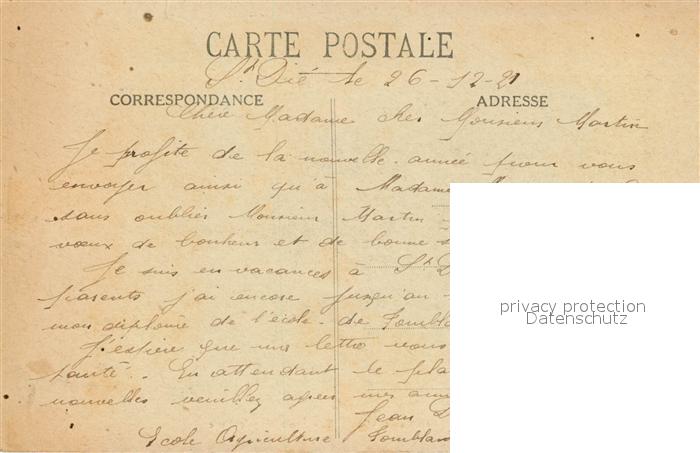 CARTE POSTALE
St Dié le 26-12-21
CORRESPONDANCE
ADRESSE
Chère Madame cher Monsieur Martin
Je profite de la nouvelle année pour vous
envoyer ainsi qu'à Madame
sans oublier Monsieur Martin
vœux de bonheur et de bonne
Je suis en vacances à St D
parents j'ai encore jusqu'au
mon diplome de l'école de Tombla
J'espère que ma lettre vous
santé. En attendant le pla
nouvelles veuillez agréer mes ami
Jean D
Ecole Agriculture Tomblai
privacy protection
Datenschutz